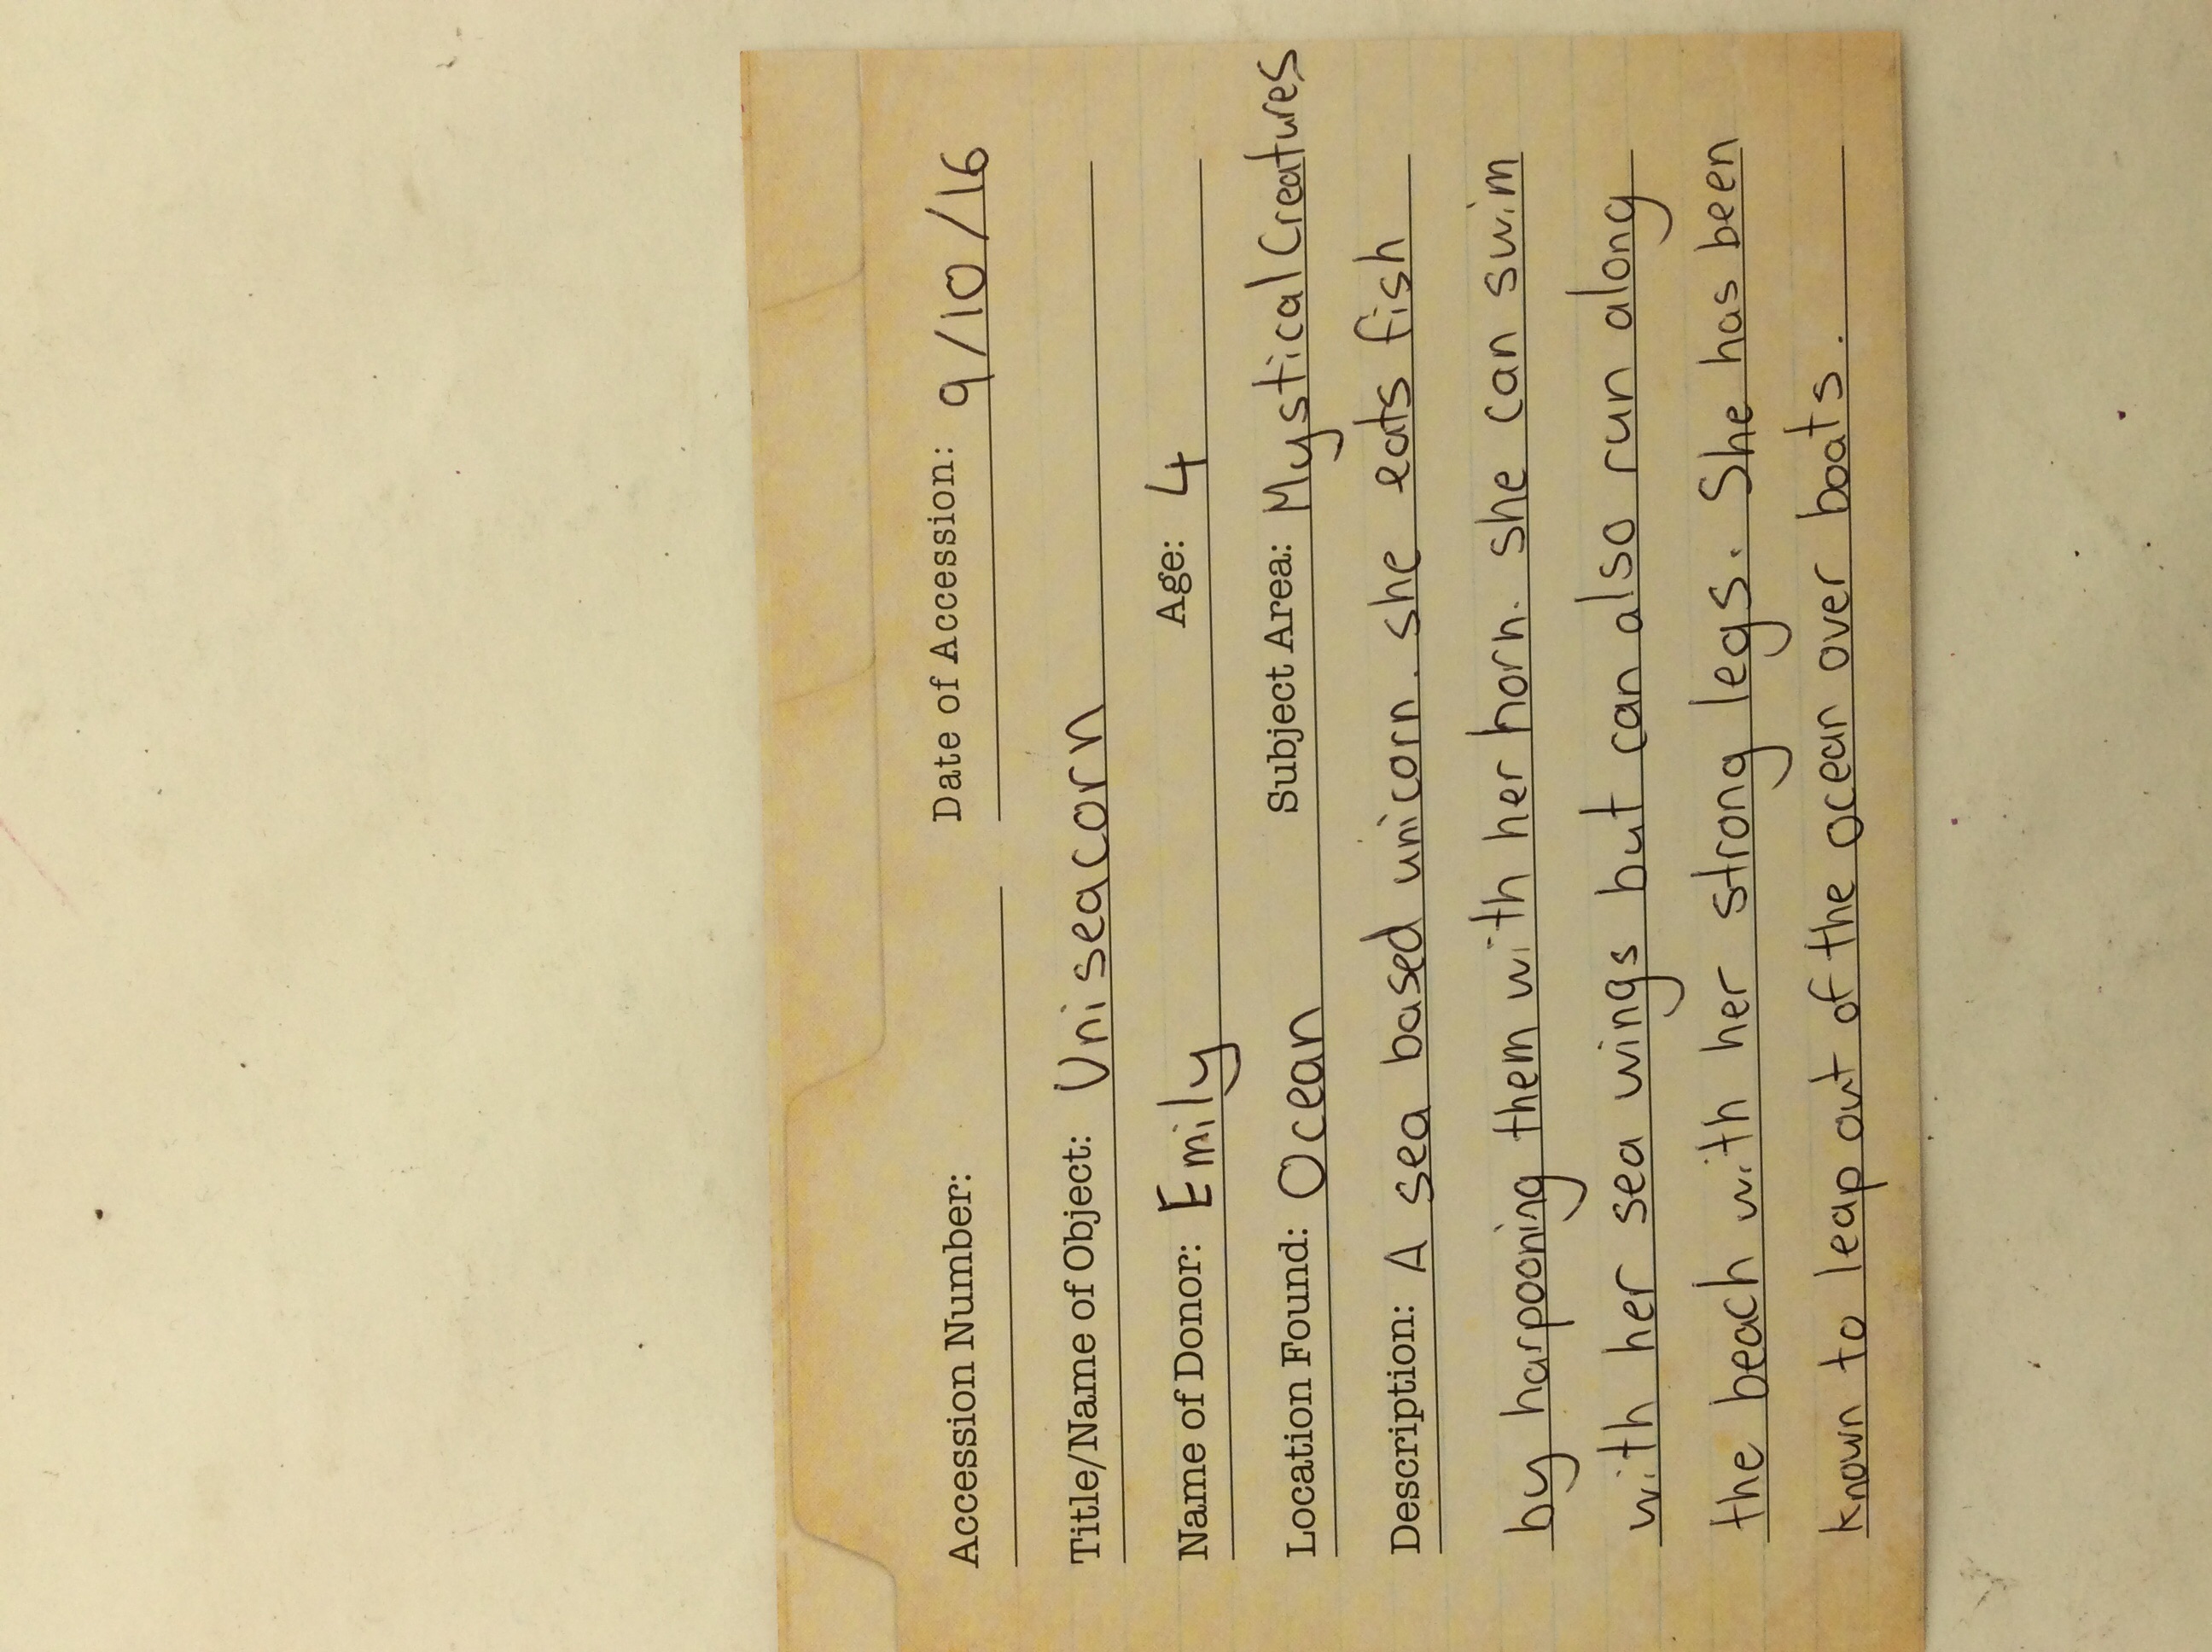 Accession Number: Date of Accession: 9/10/16
Title/Name of Object: Uniseacorn
Name of Donor: Emily Age: 4
Location Found: Ocean Subject Area: Mystical Creatures
Description: A sea based unicorn. she eats fish
by harpooning them with her horn. she can swim
with her sea wings but can also run along
the beach with her strong legs. She has been
known to leap out of the ocean over boats.